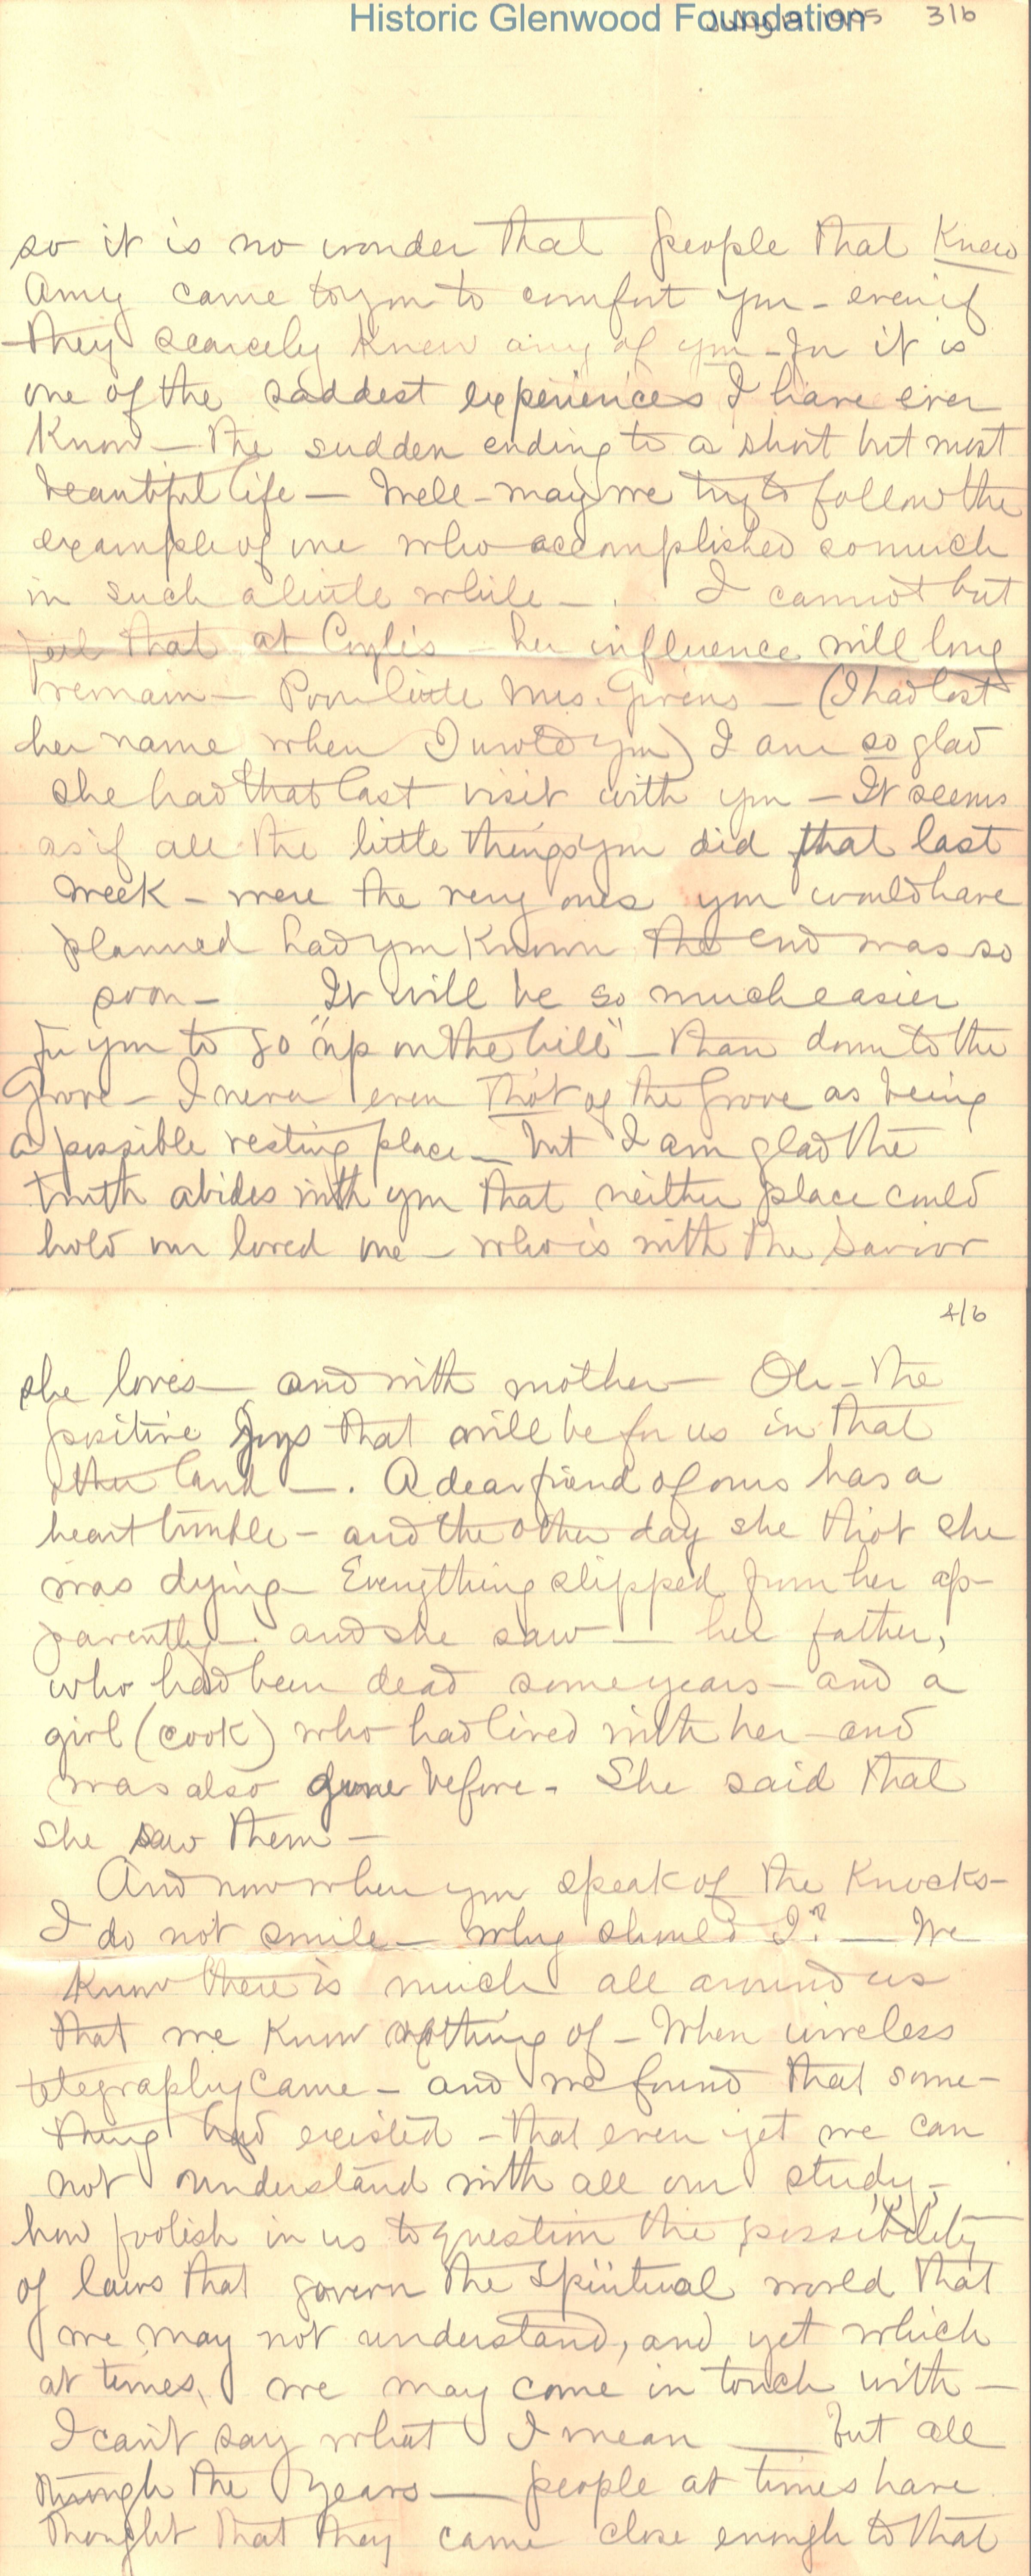 Historic Glenwood Foundation
1905 3/6
so it is no wonder that people that knew
Amy came to you to comfort you - even if
they scarcely knew any of you - for it is
one of the saddest experiences I have ever
know - The sudden ending to a short but most
beautiful life - Well - may we try to follow the
example of one who accomplished so much
in such a little while - . I cannot but
feel that at Coyle's - her influence will long
remain - Poor little Mrs. Givens - (I had lost
her name when I wrote you) I am so glad
she had that last visit with you - It seems
as if all the little things you did that last
week - were the very ones you would have
planned had you known the end was so
soon - It will be so much easier
for you to go "up on the hill" - than down to the
Grove - I never even thot of the Grove as being
a possible resting place - but I am glad the
truth abides with you that neither place could
hold our loved one - who is with the Savior
4/6
she loves - and with mother - Oh - the
positive joys that will be for us in that
other land - . A dear friend of ours has a
heart trouble - and the other day she thot she
was dying - Everything slipped from her ap-
parently - and she saw - her father,
who had been dead some years - and a
girl (cook) who had lived with her - and
was also gone before - She said that
she saw them -
And now when you speak of the knocks -
I do not smile - Why should I? - We
know there is much all around us
that we know nothing of - When wireless
telegraphy came - and we found that some-
thing had existed - that even yet we can
not understand with all our study, -
how foolish in us to question the possibility
of laws that govern the spiritual world that
we may not understand, and yet which
at times, we may come in touch with -
I can't say what I mean - but all
through the years - people at times have
thought that they came close enough to that